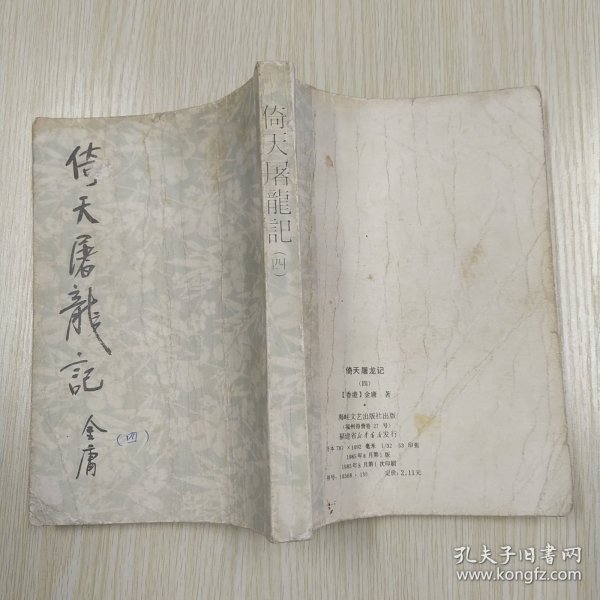 倚天屠龍記
金庸
(四)
倚天屠龍記
(四)
倚天屠龙记
(四)
【香港】金庸 著
海峡文艺出版社出版
(福州得贵巷27号)
福建省新华书店发行
开本787×1092毫米 1/32 13印张
1985年8月第1版
1985年8月第1次印刷
书号:10368·155 定价:2.11元
孔夫子旧书网
www.kongfz.com